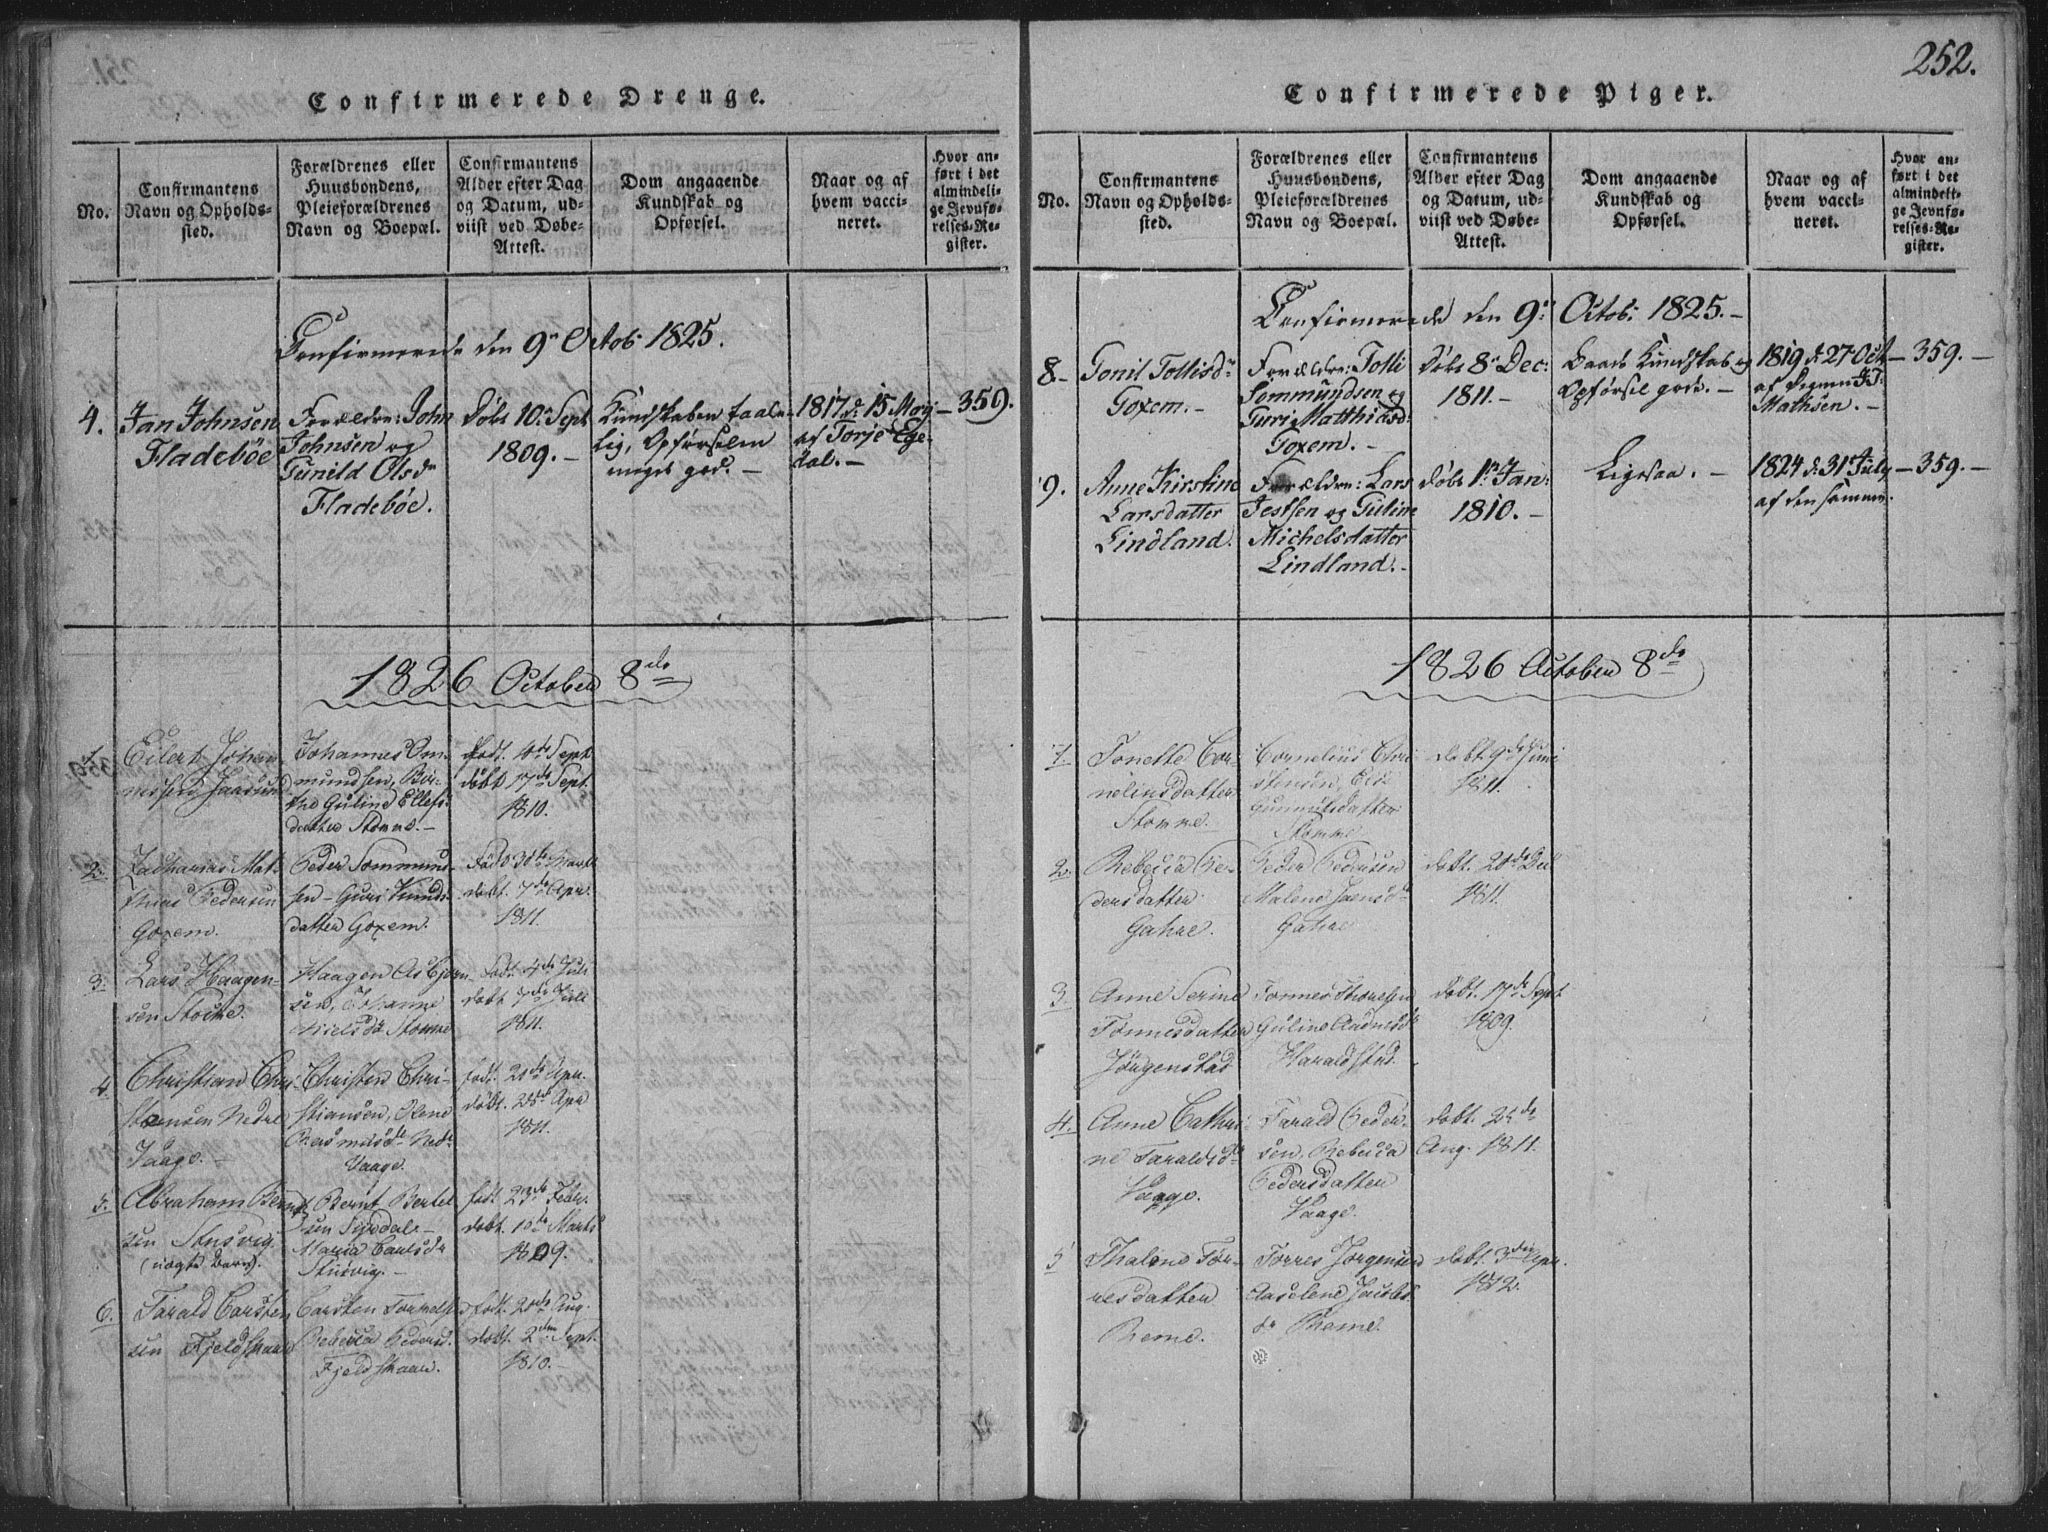 252.
Confirmerede Drenge.
No.
Confirmantens
Navn og Opholds-
sted.
Forældrenes eller
Huusbondens,
Pleieforældrenes
Navn og Boepæl.
Confirmantens
Alder efter Dag
og Datum, ud-
viist ved Døbe-
Attest.
Dom angaaende
Kundskab og
Opførsel.
Naar og af
hvem vacci-
neret.
Hvor an-
ført i det
almindeli-
ge Jevnfø-
relses-Re-
gister.
Confirmerede den 9de Octob: 1825.
4.
Jan Johnsen
Fladebøe
Forældre: John
Johnsen og
Gunild Olsdr
Fladebøe.
Døbt 10de Sept
1809. -
Kundskaben taale-
lig, Opførselen
meget god. -
1817 d: 15 May
af Torje Ege-
dal. -
359.
1826 October 8de
1.
Eilert Johan-
nessen Jaasund
Johannes Om-
mundsen, Bir-
the Guline Ellefs
datter Stomne. -
født. 10de Sept
døbt 17de Sept.
1810.
2.
Zacharias Mat-
thias Pedersen
Goxem.
Peder Tommund-
sen - Guri Knuds-
datter Goxem.
Født 30te Marts
døbt. 7de Apr.
1811.
3.
Lars Haagen-
sen Stomne.
Haagen Asbjørn-
sen,
Nielsdr Stomne
Født. 4de Juli
døbt 7de Juli
1811.
4.
Christian Chri-
stensen Nedre
Vaage. -
Christen Chri-
stiansen,
Nedr
Vaage.
født. 20de Apr.
døbt. 28de Apr
1811.
5.
Abraham Bernt
sen Stusvig.
(uægte Barn).
Bernt Bertel
sen Syrdal -
Maria Carlsdr
Stusvig. -
født. 23de Febr.
døbt. 10de Marts
1809.
6.
Tarald Carsten
sen Fjeldskaar
Carsten
Rebecca Pedersd.
Fjeldskaar.
født. 20de Aug.
døbt. 2den Sept.
1810. -
Confirmerede Piger.
No.
Confirmantens
Navn og Opholds-
sted.
Forældrenes eller
Huusbondens,
Pleieforældrenes
Navn og Boepæl.
Confirmantens
Alder efter Dag
og Datum, ud-
viist ved Døbe-
Attest.
Dom angaaende
Kundskab og
Opførsel.
Naar og af
hvem vacci-
neret.
Hvor an-
ført i det
almindeli-
ge Jevnfø-
relses-Re-
gister.
Confirmerede den 9de Octob: 1825. -
8.
Gonil Tollisdr
Goxem. -
Forældre: Tolli
Tommundsen og
Guri Matthiasdr
Goxem. -
Døbt 8de Dec:
1811. -
Baade Kundskab og
Opførsel gode. -
1819 d: 27 Oct
af Degnen
Mathsen. -
359. -
9.
Anne Kirstine
Larsdatter
Lindland.
Forældre: Lars
Jestsen og Guline
Michelsdatter
Lindland. -
Døbt 1ste Jan:
1810. -
Ligesaa. -
1824 d: 31 July
af den samme.
359. -
1826 October 8de
1.
Tonette Cor-
neliusdatter
Stomne.
Cornelius Chri-
stensen, Else
Gunmunsdatter
Stomne.
døbt 9de Juni
1811.
2.
Rebecca Pe-
dersdatter
Gahre.
Peder Pedersen
Malene Jaensdr
Gahre
døbt. 20de Dec
1811.
3.
Anne Serine
Tønnesdatter
Jørgenstad
Tønnes Thoresen
Guline Aadnesdr
Haraldstad.
døbt. 17de Sept
1809.
4.
Anne Cathri-
ne Taraldsdr
Vaage.
Tarald Peder-
sen, Rebecca
Pedersdatter
Vaage.
døbt. 25de
Aug. 1811.
5
Thalene Tør-
resdatter
Rerne.
Tørres Jørgensen
Aaselene Jacobs
dr Rerne.
døbt. 3die Apr.
1812.